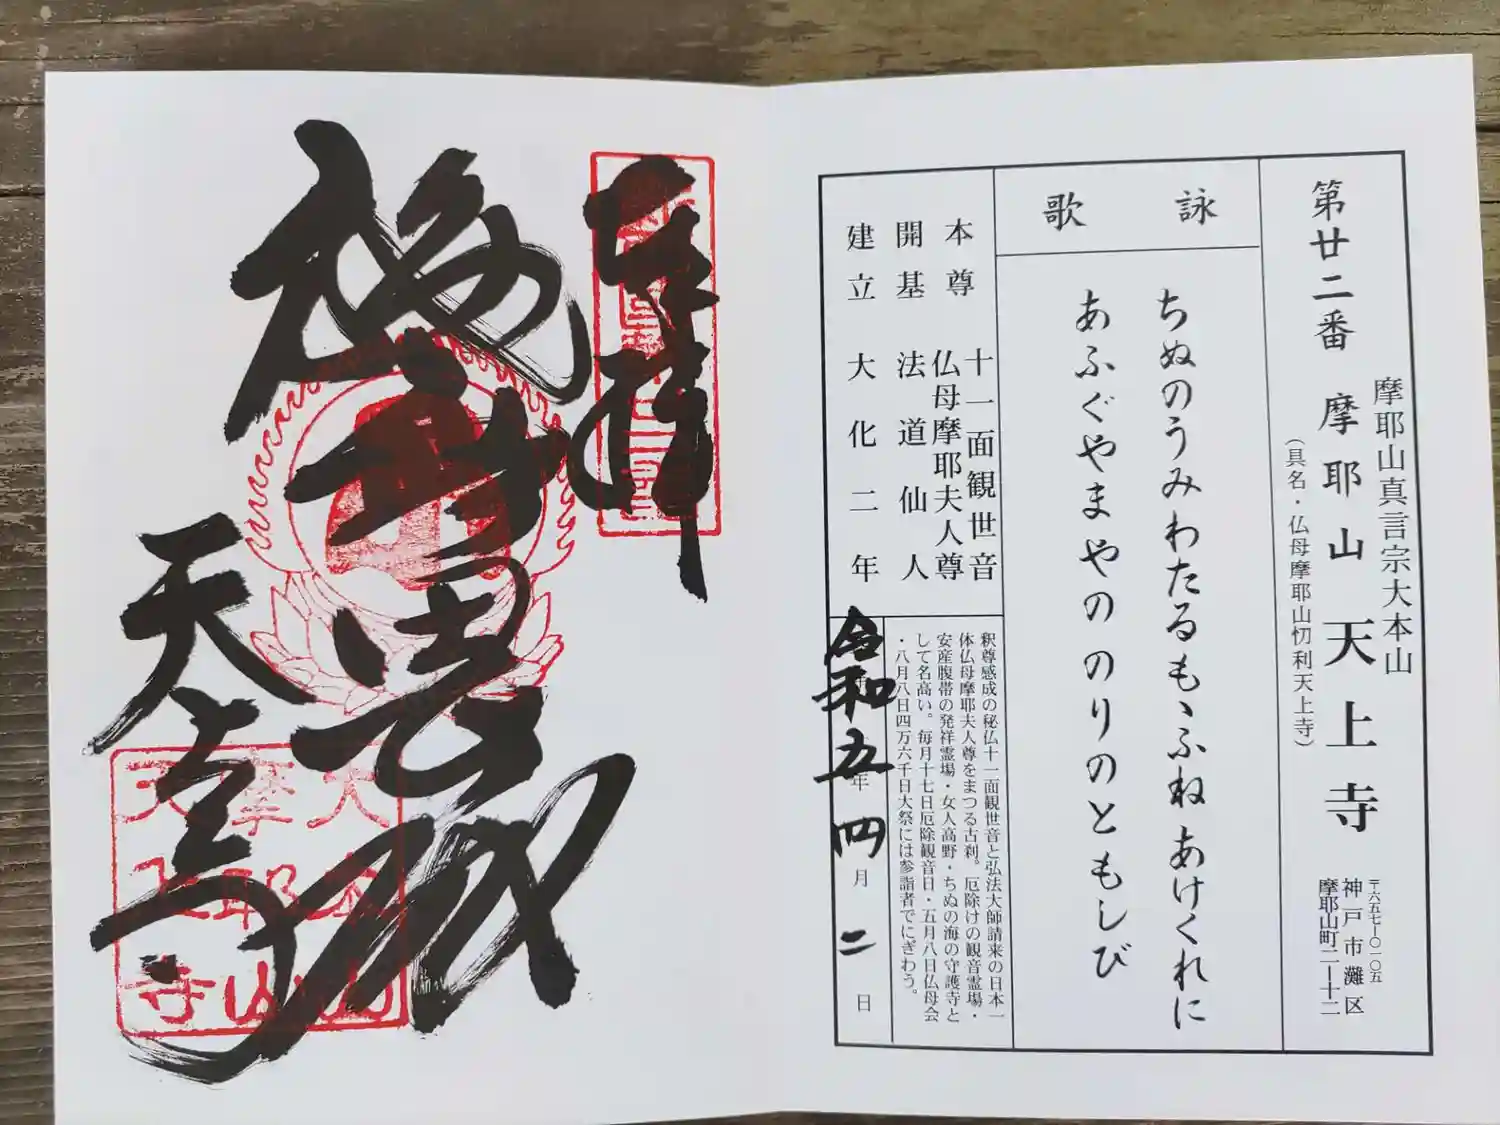 摩耶山真言宗大本山
第廿二番 摩耶山 天上寺
(具名・仏母摩耶山忉利天上寺)
〒六五七ー〇一〇五
神戸市灘区
摩耶山町二ー十二
詠歌
ちぬのうみわたるもゝふね あけくれに
あふぐやまやの のりのともしび
本尊 十一面観世音
仏母摩耶夫人尊
開基 法道仙人
建立 大化二年
釈尊感成の秘仏十一面観世音と弘法大師請来の日本一
体仏母摩耶夫人尊をまつる古刹。厄除けの観音霊場・
安産腹帯の発祥霊場・女人高野・ちぬの海の守護寺と
して名高い。毎月十七日厄除観音日・五月八日仏母会
・八月八日四万六千日大祭には参詣者でにぎわう。
令和五年四月二日
奉拝
天上寺
大本山
摩耶山
天上寺